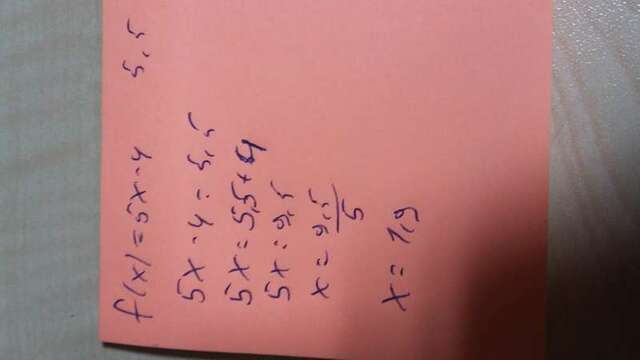 f(x)=5x-4 5,5
5x-4=5,5
5x=5,5+4
5x=9,5
x=9,5/5
x=1,9